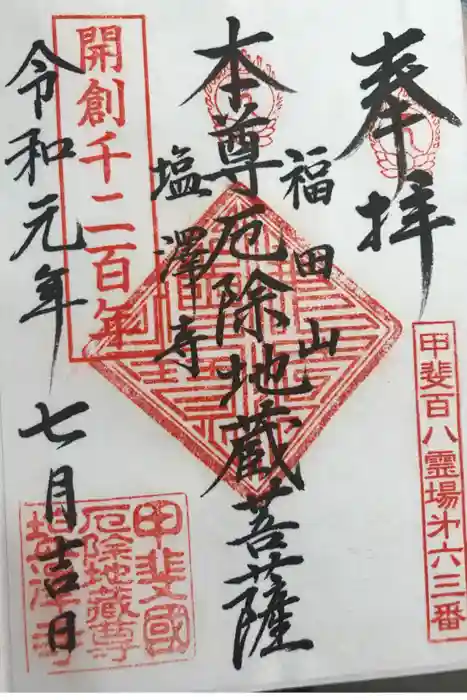 奉拝
甲斐百八霊場第六三番
福田山
本尊厄除地蔵菩薩
塩澤寺
開創千二百年
令和元年七月吉日
甲斐國
厄除地蔵尊
塩澤寺